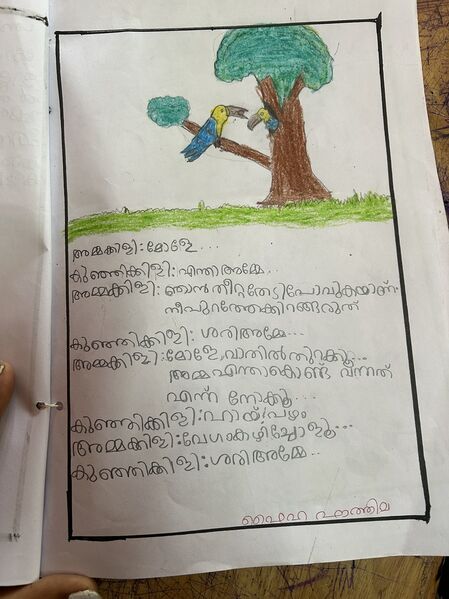 അമ്മക്കിളി: മോളേ...
കുഞ്ഞിക്കിളി: എന്താ അമ്മേ..
അമ്മക്കിളി: ഞാൻ തീറ്റതേടി പോവുകയാണ്
നീ പുറത്തേക്കിറങ്ങരുത്
കുഞ്ഞിക്കിളി: ശരി അമ്മേ...
അമ്മക്കിളി: മോളേ, വാതിൽ തുറക്കൂ...
അമ്മ എന്താ കൊണ്ട് വന്നത്
എന്ന് നോക്കൂ...
കുഞ്ഞിക്കിളി: ഹായ്! പഴം
അമ്മക്കിളി: വേഗം കഴിച്ചോളൂ...
കുഞ്ഞിക്കിളി: ശരി അമ്മേ...
ഫാത്തിമ